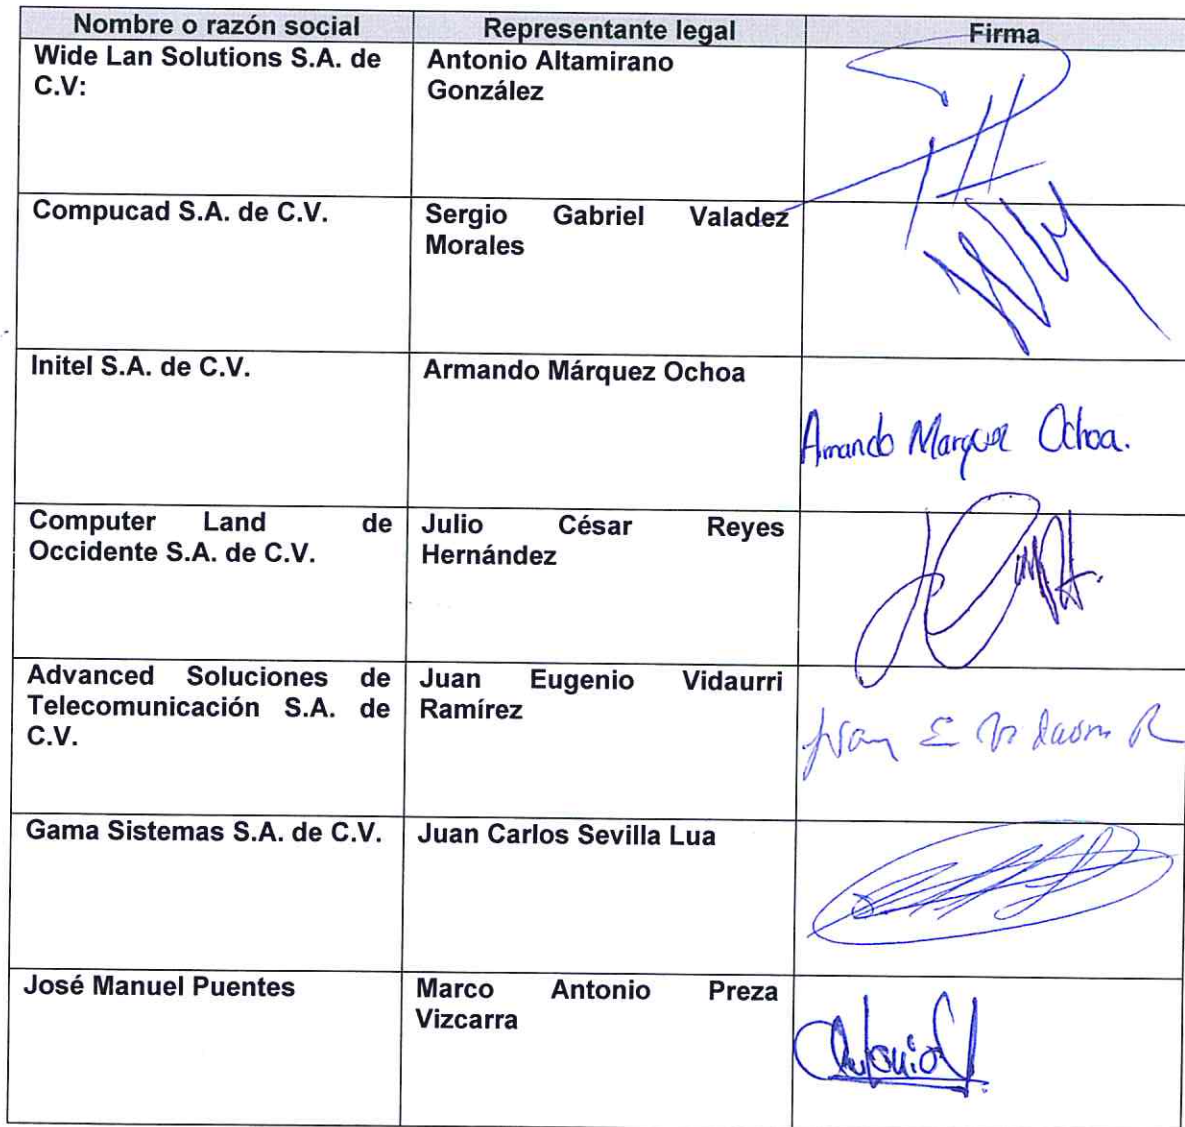 Nombre o razón social Representante legal Firma
Wide Lan Solutions S.A. de
C.V:
Antonio Altamirano
González
Compucad S.A. de C.V.
Sergio Gabriel Valadez
Morales
Initel S.A. de C.V.
Armando Márquez Ochoa
Armando Marquez Ochoa.
Computer Land de
Occidente S.A. de C.V.
Julio César Reyes
Hernández
Advanced Soluciones de
Telecomunicación S.A. de
C.V.
Juan Eugenio Vidaurri
Ramírez
Juan E Vidaurri R
Gama Sistemas S.A. de C.V.
Juan Carlos Sevilla Lua
José Manuel Puentes
Marco Antonio Preza
Vizcarra
Antonio